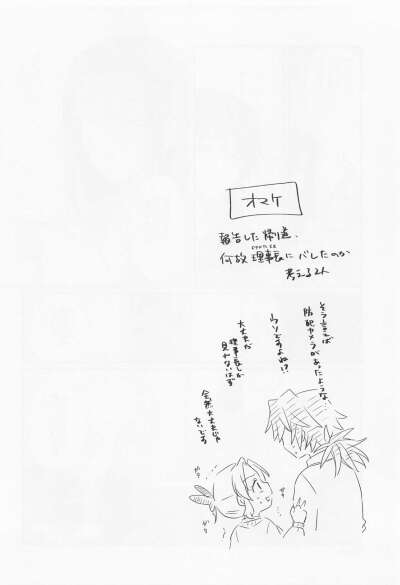 オマケ
報告した帰り道、
何故理事長にバレたのか
考える2人
そういえば
防犯カメラがあったような、
ウソですよね!?
大丈夫だ
理事長しか
見れないはず
全然大丈夫じゃ
ないです